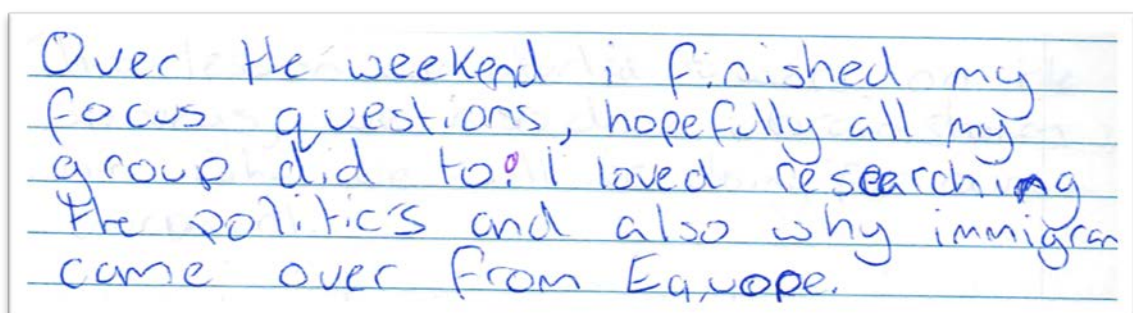 Over the weekend i finished my
focus questions, hopefully all my
group did to. I loved researching
the politic's and also why immigran
came over from Eauope.